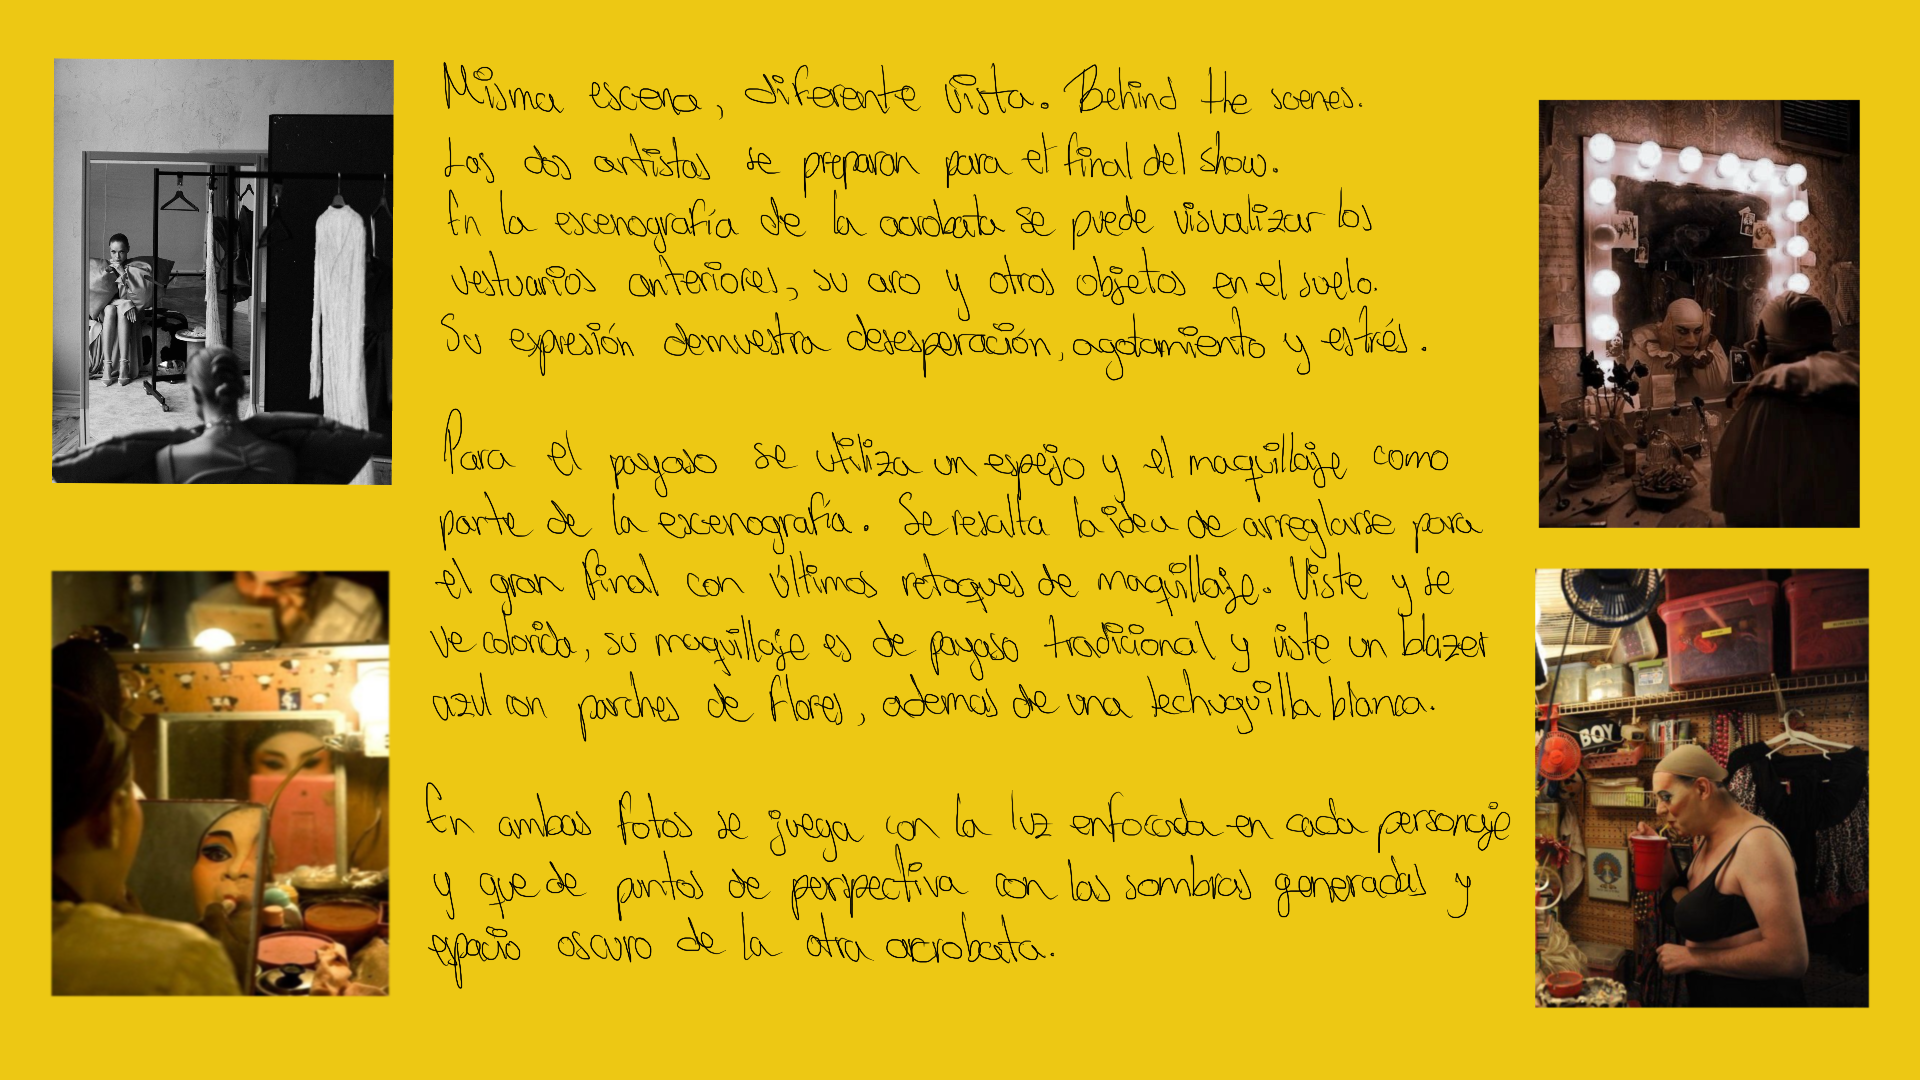 Misma escena, diferente vista. Behind the scenes.
Las dos artistas se preparan para el final del show.
En la escenografía de la acrobata se puede visualizar los
vestuarios anteriores, su aro y otros objetos en el suelo.
Su expresión demuestra desesperación, agotamiento y estrés.
Para el payaso se utiliza un espejo y el maquillaje como
parte de la escenografía. Se resalta la idea de arreglarse para
el gran final con últimos retoques de maquillaje. Viste y se
ve colorida, su maquillaje es de payaso tradicional y viste un blazer
azul con parches de flores, ademas de una lechuguilla blanca.
En ambas fotos se juega con la luz enfocada en cada personaje
y que de puntos de perspectiva con las sombras generadas y
espacio oscuro de la otra acrobata.
BOY